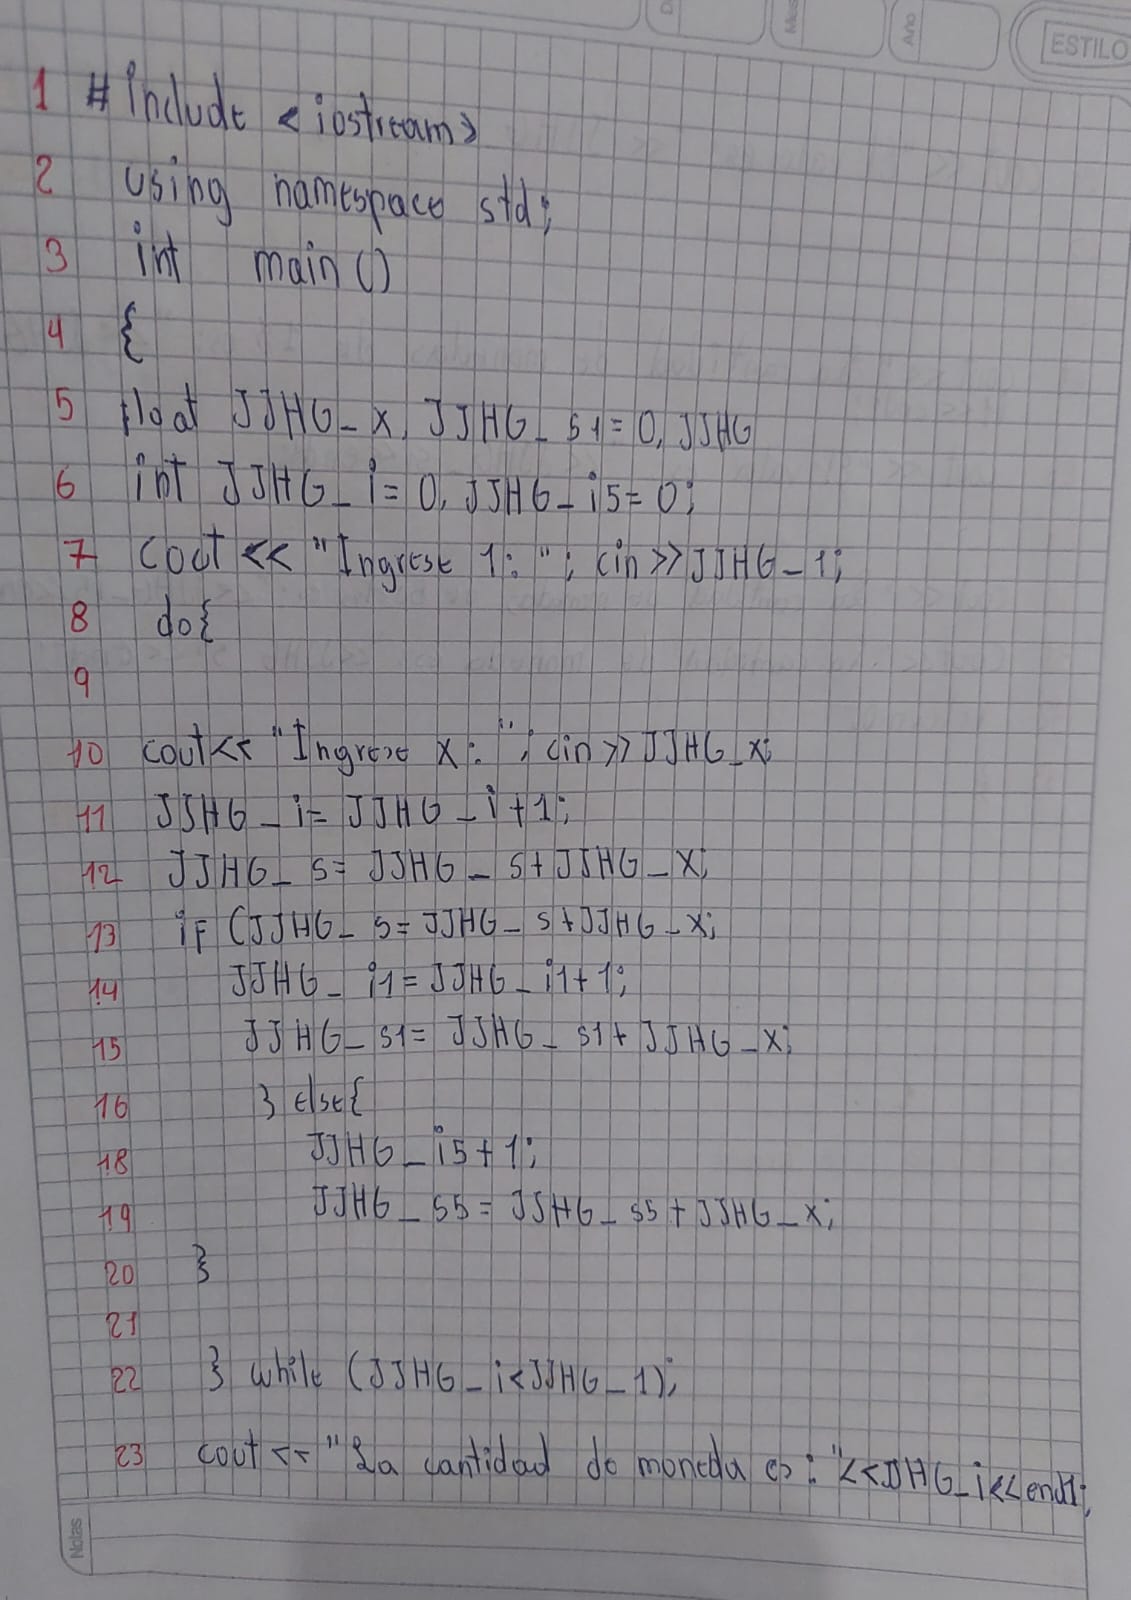 Mes
Año
ESTILO
1 #include <iostream>
2 using namespace std;
3 int main()
4 {
5 float JJHG_x, JJHG_s1=0, JJHG
6 int JJHG_i=0, JJHG_i5=0;
7 cout << "Ingrese 1: "; cin>>JJHG_1;
8 do{
9
10 cout<< "Ingrese x: "; cin>>JJHG_x;
11 JJHG_i= JJHG_i+1;
12 JJHG_s= JJHG_s+JJHG_x;
13 if (JJHG_s=JJHG_s+JJHG_x;
14 JJHG_i1=JJHG_i1+1;
15 JJHG_s1= JJHG_s1+JJHG_x;
16 } else{
18 JJHG_i5+1;
19 JJHG_s5= JJHG_s5+JJHG_x;
20 }
21
22 } while (JJHG_i<JJHG_1);
23 cout<< "La cantidad de moneda es: "<<JJHG_i<<endl;
Notas